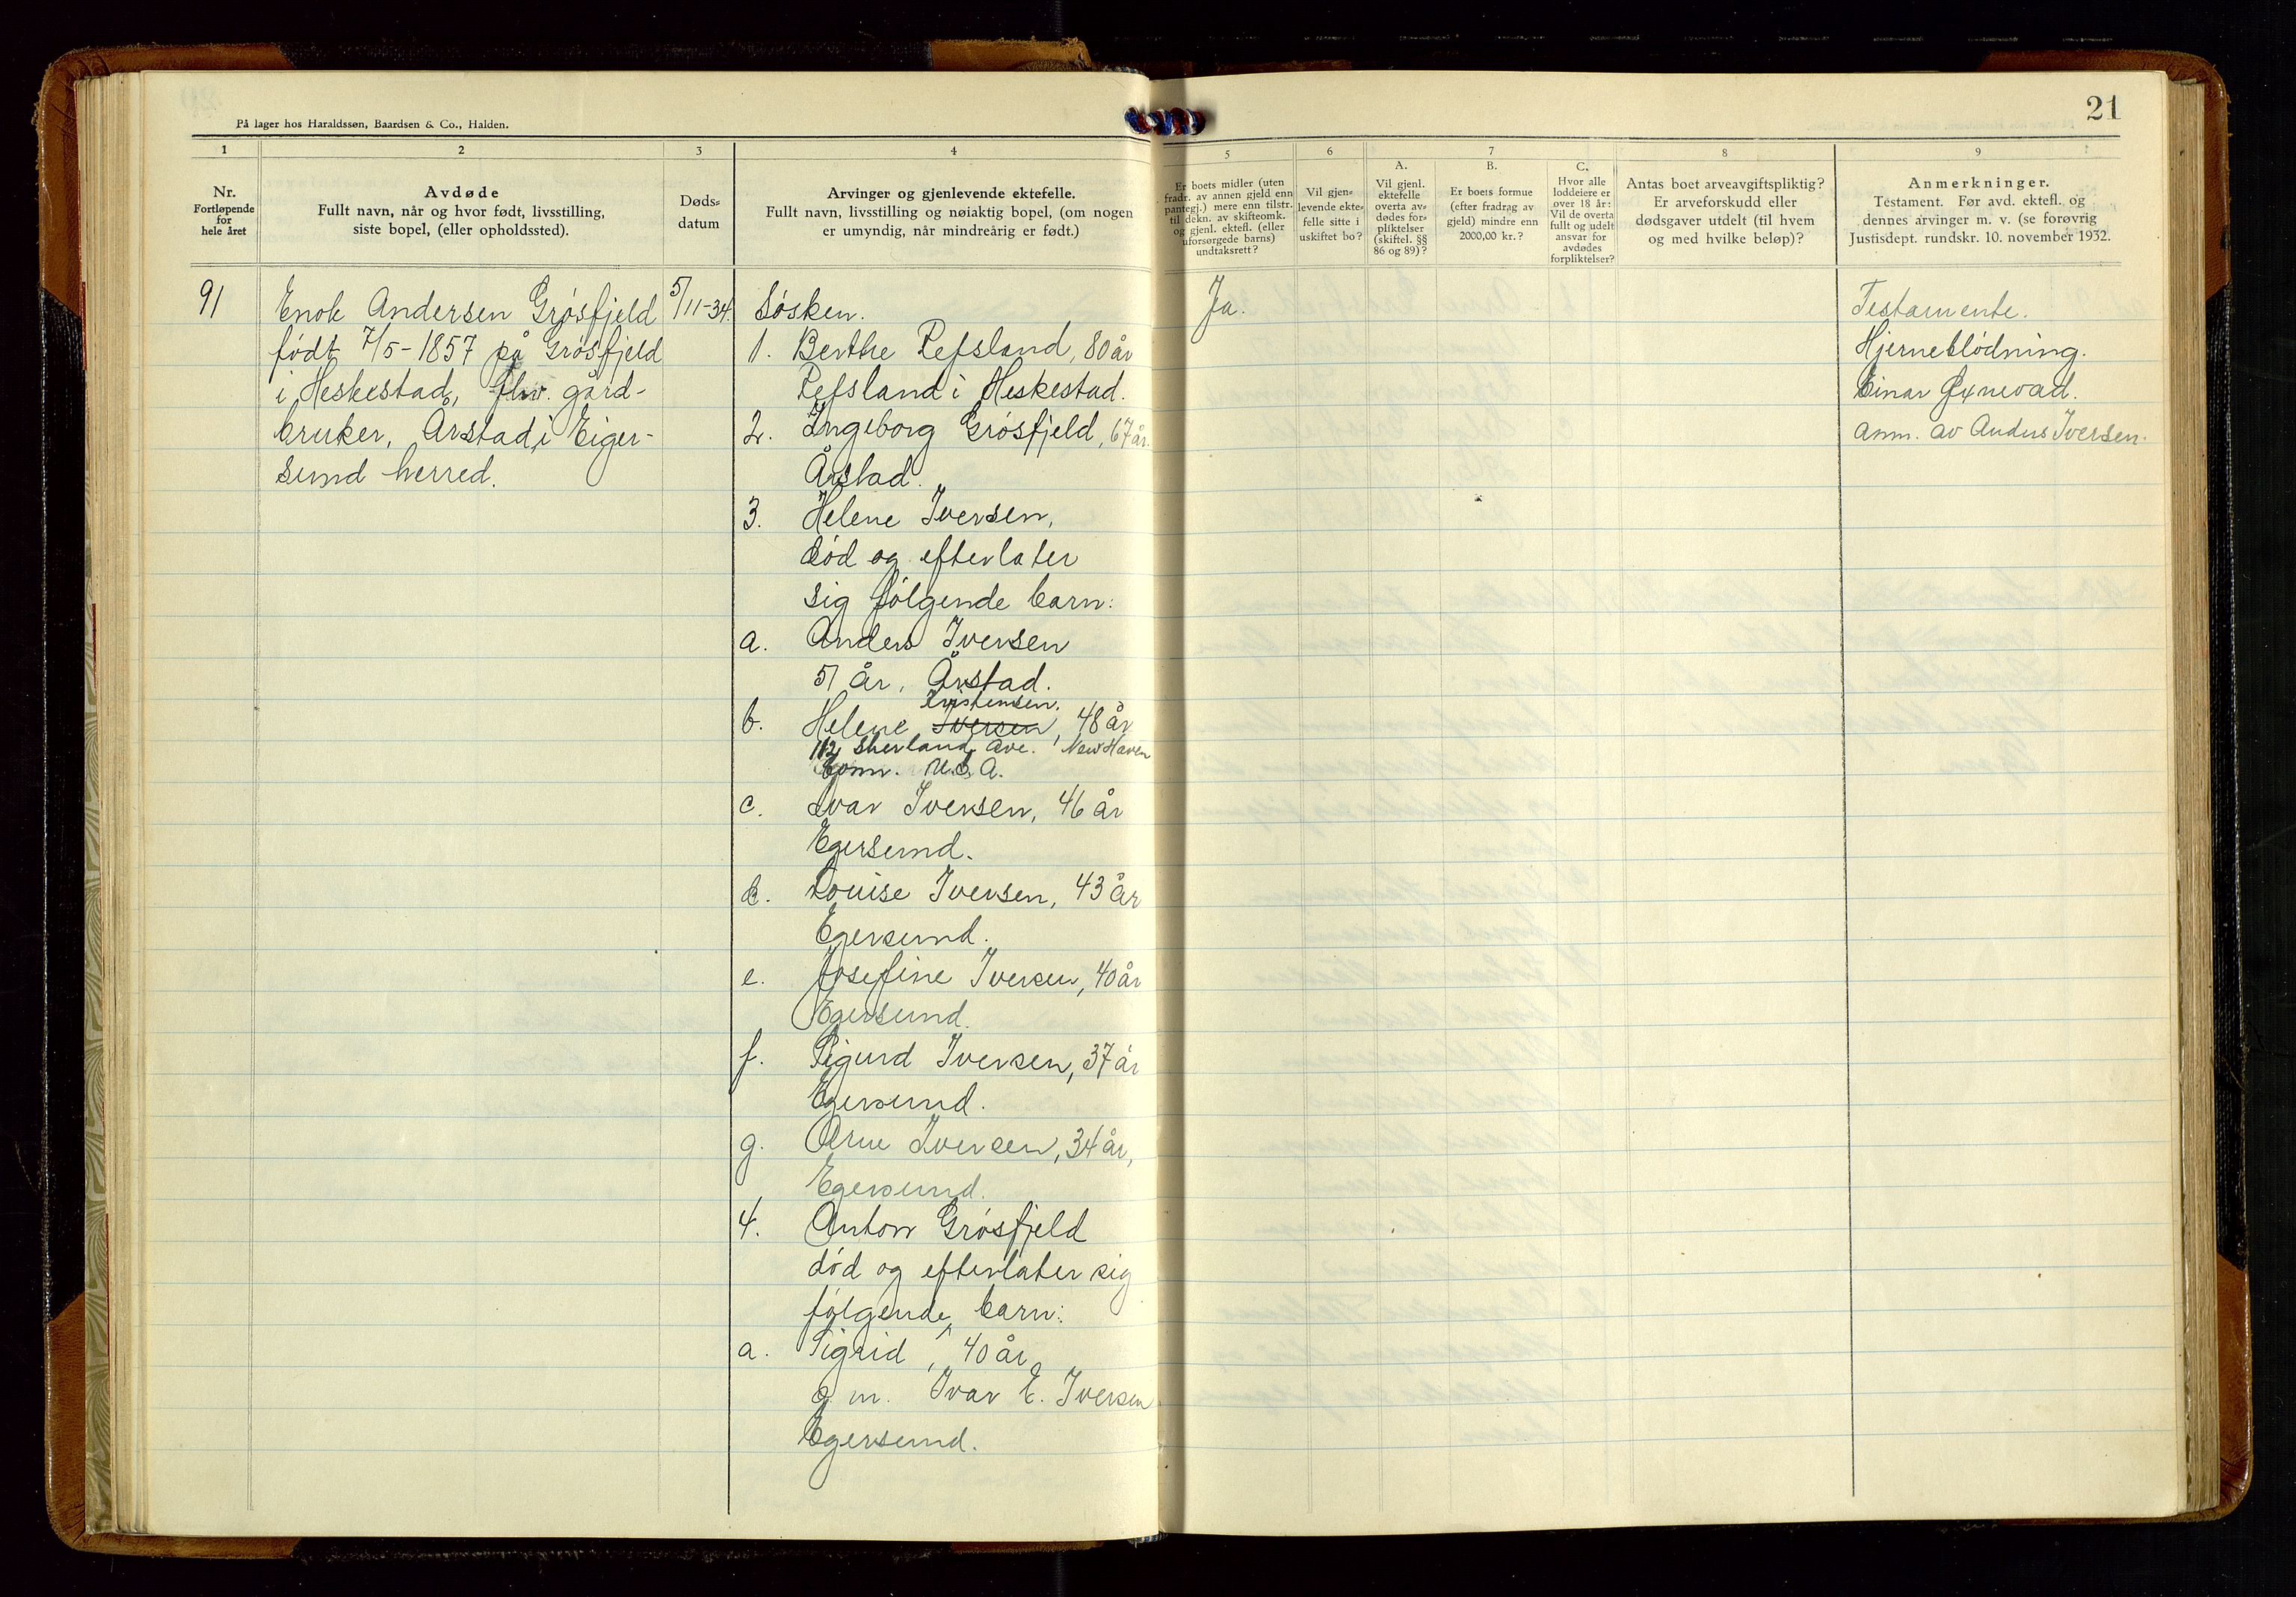 På lager hos Haraldssøn, Baardsen & Co., Halden.
21
1
2
3
4
5
6
7
8
9
Nr.
Fortløpende
for
hele året
Avdøde
Fullt navn, når og hvor født, livsstilling,
siste bopel, (eller opholdssted).
Døds-
datum
Arvinger og gjenlevende ektefelle.
Fullt navn, livsstilling og nøiaktig bopel, (om nogen
er umyndig, når mindreårig er født.)
Er boets midler (uten
fradr. av annen gjeld enn
pantegj.) mere enn tilstr.
til dekn. av skifteomk.
og gjenl. ektefl. (eller
uforsørgede barns)
undtaksrett?
Vil gjen-
levende ekte-
felle sitte i
uskiftet bo?
A.
Vil gjenl.
ektefelle
overta av-
dødes for-
pliktelser
(skiftel. §§
86 og 89)?
B.
Er boets formue
(efter fradrag av
gjeld) mindre enn
2000,00 kr.?
C.
Hvor alle
loddeiere er
over 18 år:
Vil de overta
fullt og udelt
ansvar for
avdødes
forpliktelser?
Antas boet arveavgiftspliktig?
Er arveforskudd eller
dødsgaver utdelt (til hvem
og med hvilke beløp)?
Anmerkninger.
Testament. Før avd. ektefl. og
dennes arvinger m. v. (se forøvrig
Justisdept. rundskr. 10. november 1932.
91
Enok Andersen Grøsfjeld
født 7/5-1857 på Grøsfjeld
i Heskestad, fhv. gård-
bruker, Årstad i Eiger-
sund herred.
5/11-34.
Søsken.
1. Berthe Refsland, 80 år
Refsland i Heskestad.
2. Ingeborg Grøsfjeld, 67 år.
Årstad.
3. Helene Iversen,
død og efterlater
sig følgende barn:
a. Anders Iversen
51 år, Årstad.
Kristensen.
b. Helene Iversen, 48 år
112 Sherland Ave. New Haven
Conn. U.S.A.
c. Ivar Iversen, 46 år
Egersund.
d. Louise Iversen, 43 år
Egersund.
e. Josefine Iversen, 40 år
Egersund.
f. Sigurd Iversen, 37 år
Egersund.
g. Arne Iversen, 34 år,
Egersund.
4. Anton Grøsfjeld
død og efterlater sig
følgende barn:
a. Sigrid, 40 år
g. m. Ivar E. Iversen
Egersund.
Ja.
Testamente.
Hjerneblødning.
Einar Øxnevad.
Anm. av Anders Iversen.